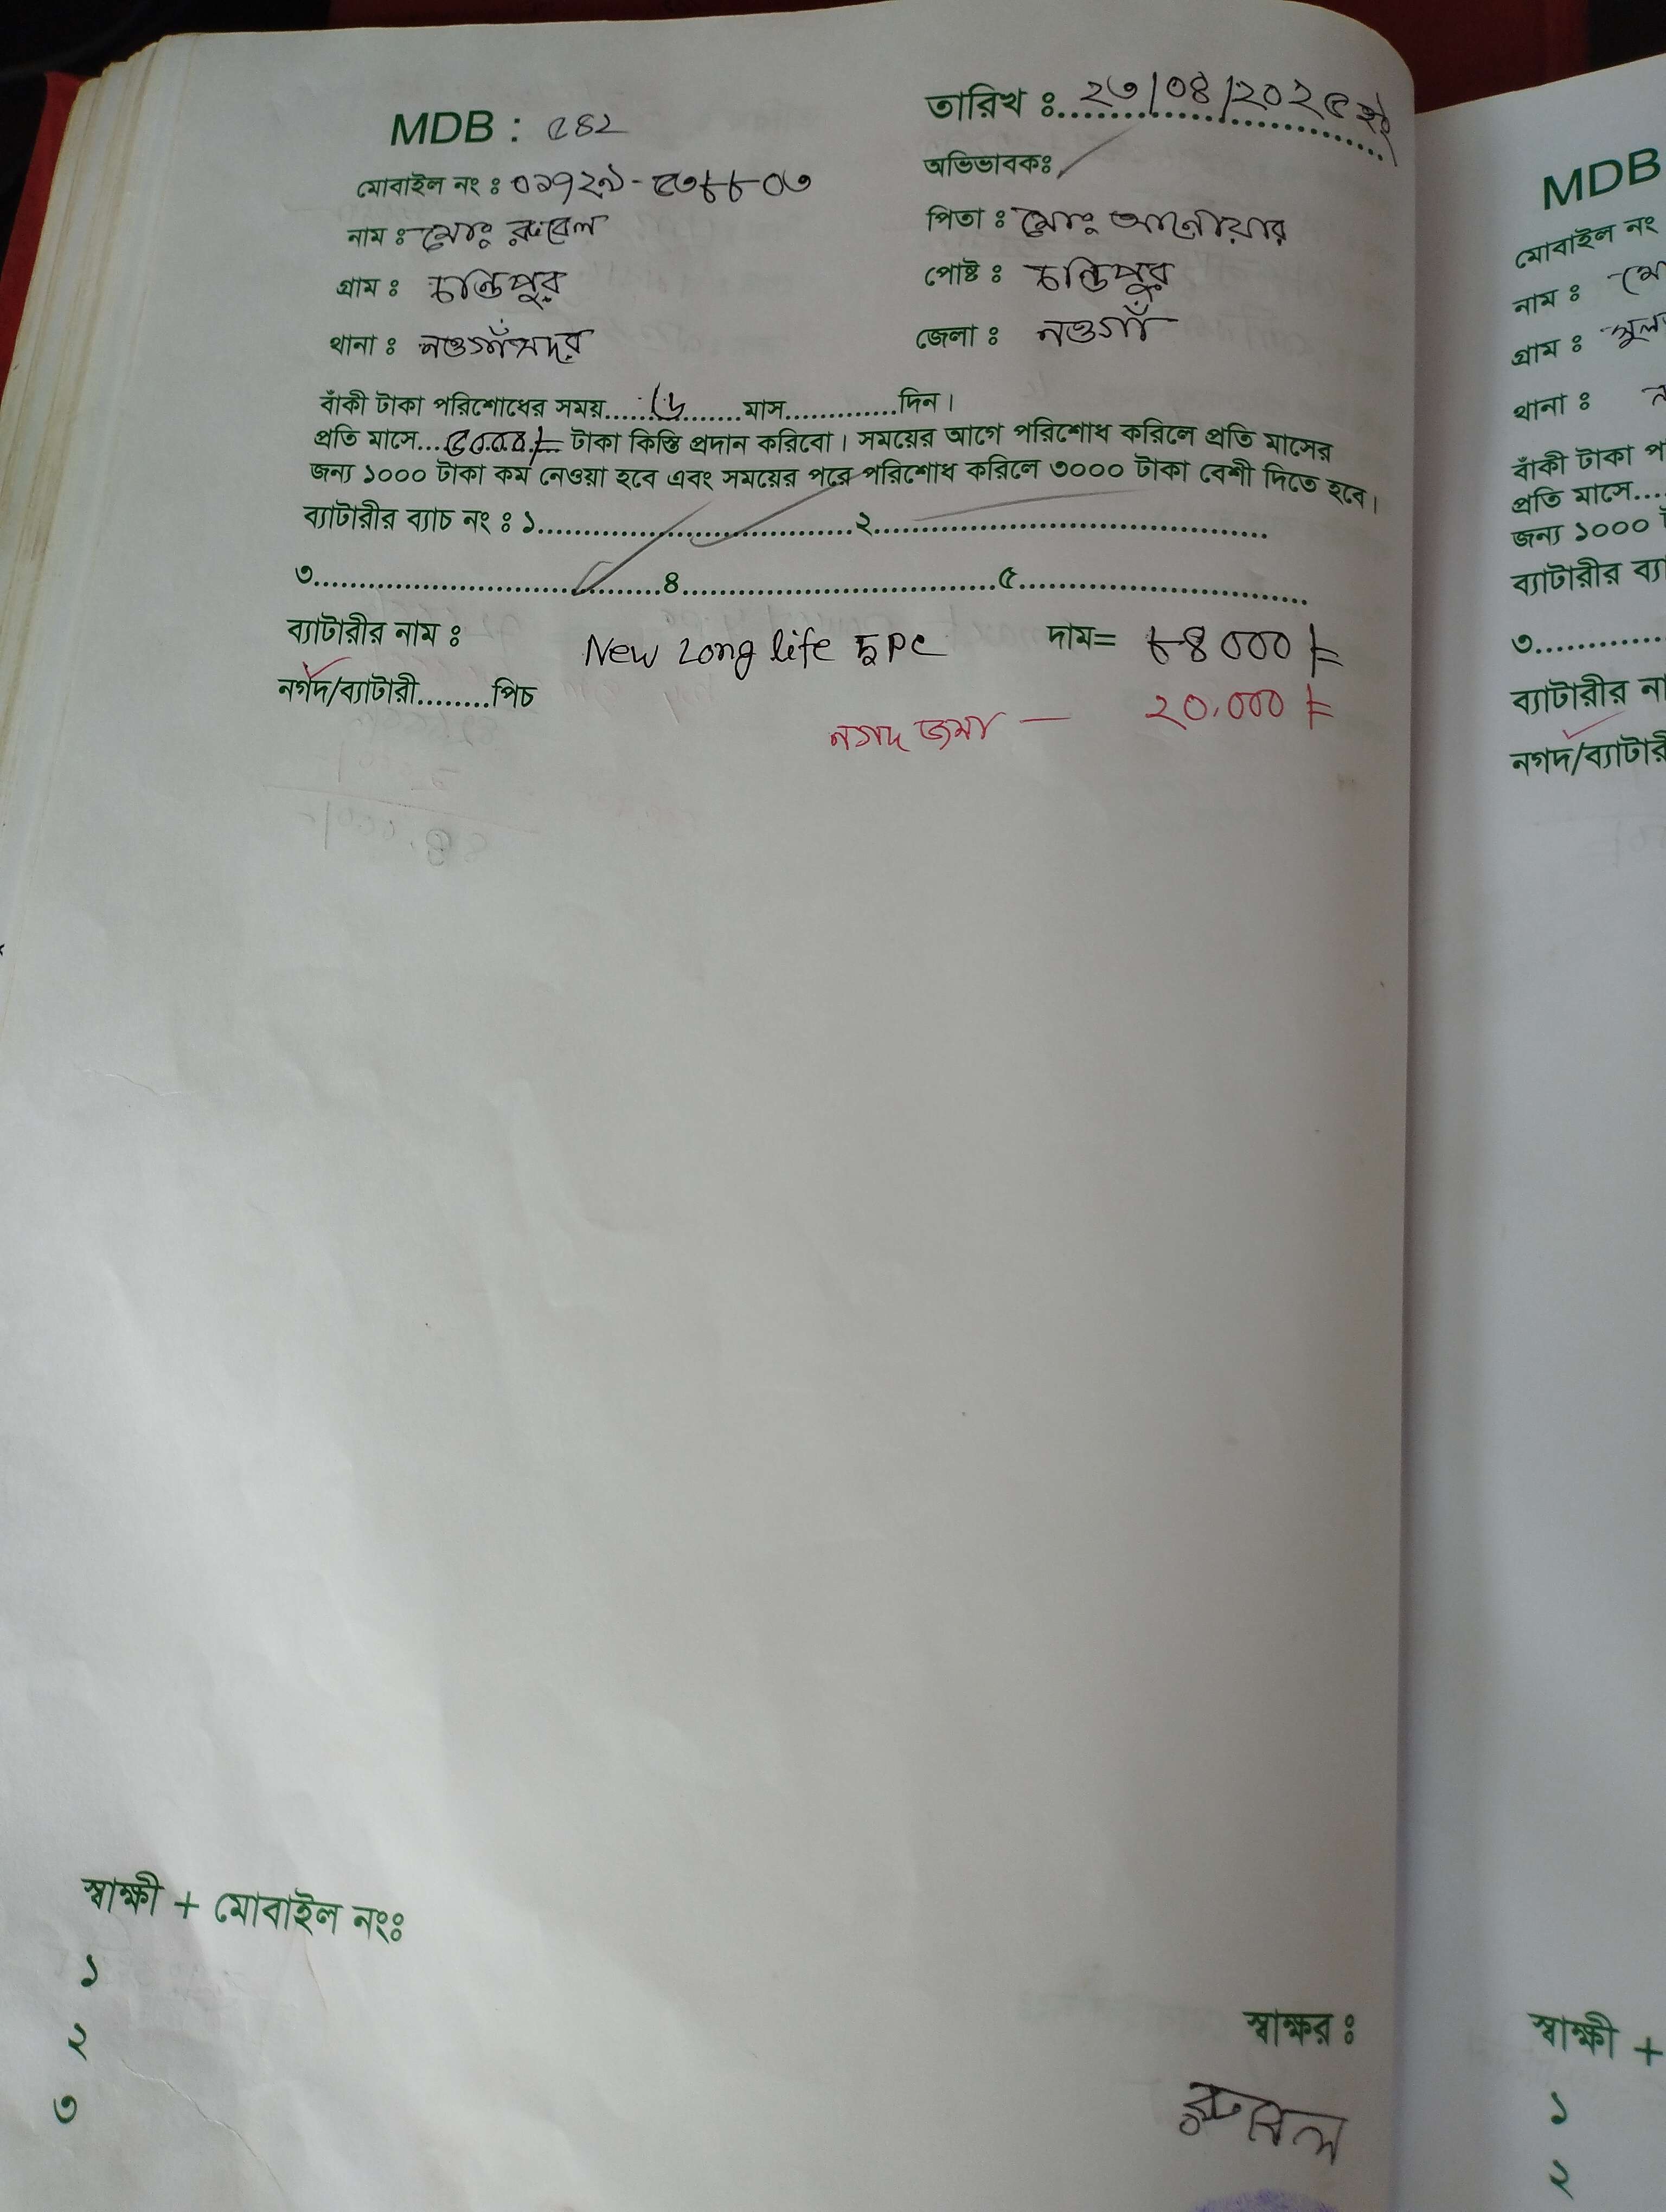 MDB : ৫৪২
তারিখ : ২৩/০৪/২০২৫ ইং
মোবাইল নং : ০১৭২৯-৫৩৮৮০৩
অভিভাবকঃ
নাম : মোঃ রুবেল
পিতা : মোঃ আনোয়ার
গ্রাম : চন্ডিপুর
পোষ্ট : চন্ডিপুর
থানা : নওগাঁ সদর
জেলা : নওগাঁ
বাঁকী টাকা পরিশোধের সময়.....৬.....মাস.............দিন।
প্রতি মাসে...৫০০০/=... টাকা কিস্তি প্রদান করিবো। সময়ের আগে পরিশোধ করিলে প্রতি মাসের
জন্য ১০০০ টাকা কম নেওয়া হবে এবং সময়ের পরে পরিশোধ করিলে ৩০০০ টাকা বেশী দিতে হবে।
ব্যাটারীর ব্যাচ নং : ১..............................২..............................
৩..............................৪..............................৫..............................
ব্যাটারীর নাম :
New Long life ৫ PC দাম= ৮৪০০০/=
নগদ/ব্যাটারী........পিচ
নগদ জমা — ২০,০০০/=
স্বাক্ষী + মোবাইল নংঃ
১
২
৩
স্বাক্ষর :
রুবেল
MDB
মোবাইল নং
নাম :
গ্রাম :
থানা :
বাঁকী টাকা
প্রতি মাসে....
জন্য ১০০০
ব্যাটারীর
৩..............
ব্যাটারীর
নগদ/ব্যাটারী
স্বাক্ষী +
১
২